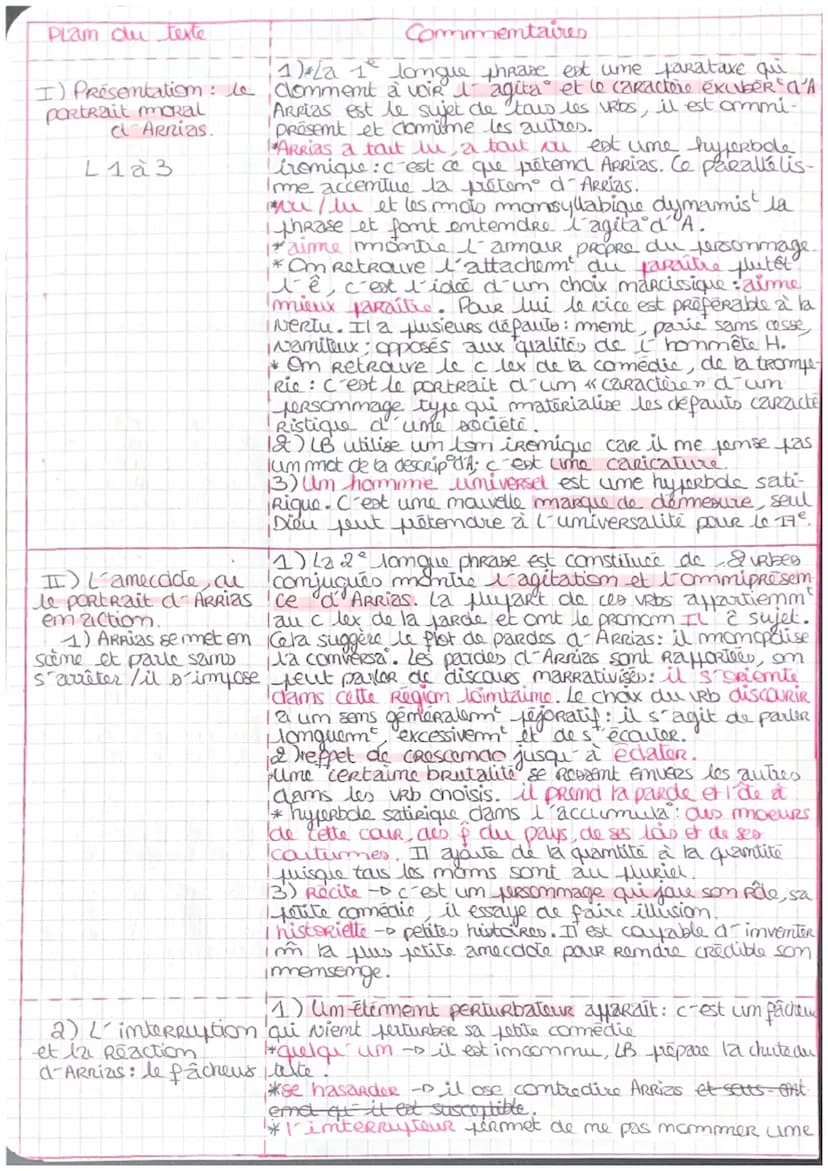 Plan du texte
Commentaires
I) Présentation : le
portrait moral
d'Arrias.
L 1 à 3
1)*La 1e longue phrase est une parataxe qui
donnent à voir l'agita° et le caractère exubért d'A
Arrias est le sujet de tous les vrbs, il est omni-
présent et domine les autres.
*Arrias a tout lu, a tout vu est une hyperbole
ironique : c'est ce que prétend Arrias. Ce parallélis-
me accentue la préten° d'Arrias.
*vu / lu et les mots monosyllabique dynamist la
phrase et font entendre l'agita° d'A.
*aime montre l'amour propre du personnage.
*On retrouve l'attachemt du paraître plutôt
l'ê, c'est l'idée d'un choix narcissique : aime
mieux paraître. Pour lui le vice est préférable à la
vertu. Il a plusieurs défauts : ment, parle sans cesse,
vaniteux ; opposés aux qualités de l'honnête H.
*On retrouve le c lex de la comédie, de la trompe-
rie : c'est le portrait d'un « caractère » d'un
personnage type qui matérialise les défauts caracté
ristique d'une société.
2) LB utilise un ton ironique car il ne pense pas
un mot de la descrip° d'A; c'est une caricature.
3) Un homme universel est une hyperbole sati-
rique. C'est une nouvelle marque de démesure, seul
Dieu peut prétendre à l'universalité pour le 17e.
II) L'anecdote, ou
le portrait d'Arrias
en action.
1) Arrias se met en
scène et parle sans
s'arrêter / il s'impose
1) La 2e longue phrase est constituée de 8 vrbes
conjugués montre l'agitation et l'omniprésen-
ce d'Arrias. La plupart de ces vrbs appartiennt
au c lex de la parole et ont le pronom Il ê sujet.
Cela suggère le flot de paroles d'Arrias : il monopolise
la conversa°. Les paroles d'Arrias sont rapportées, on
peut parler de discours narrativisés : il s'oriente
dans cette région lointaine. Le choix du vrb discourir
a un sens généralemt péjoratif : il s'agit de parler
longuemt, excessivemt et de s'écouter.
2) effet de crescendo jusqu'à éclater.
Une certaine brutalité se ressent envers les autres
dans les vrb choisis. il prend la parole et l'ôte à
* hyperbole satirique dans l'accumula° : des moeurs
de cette cour, des f du pays, de ses lois et de ses
coutumes. Il ajoute de la quantité à la quantité
puisque tous les noms sont au pluriel.
3) Récite → c'est un personnage qui joue son rôle, sa
petite comédie, il essaye de faire illusion.
historiette → petites histoires. Il est capable d'inventer
m̂ la plus petite anecdote pour rendre crédible son
mensonge.
2) L'interruption
et la réaction
d'Arrias : le fâcheux
1) Un élément perturbateur apparaît : c'est un fâcheux
qui vient perturber sa petite comédie
*quelqu'un → il est inconnu, LB prépare la chute du
texte.
*se hasarder → il ose contredire Arrias et sous-ent
end qu'il est susceptible.
*l'interrupteur permet de ne pas nommer une